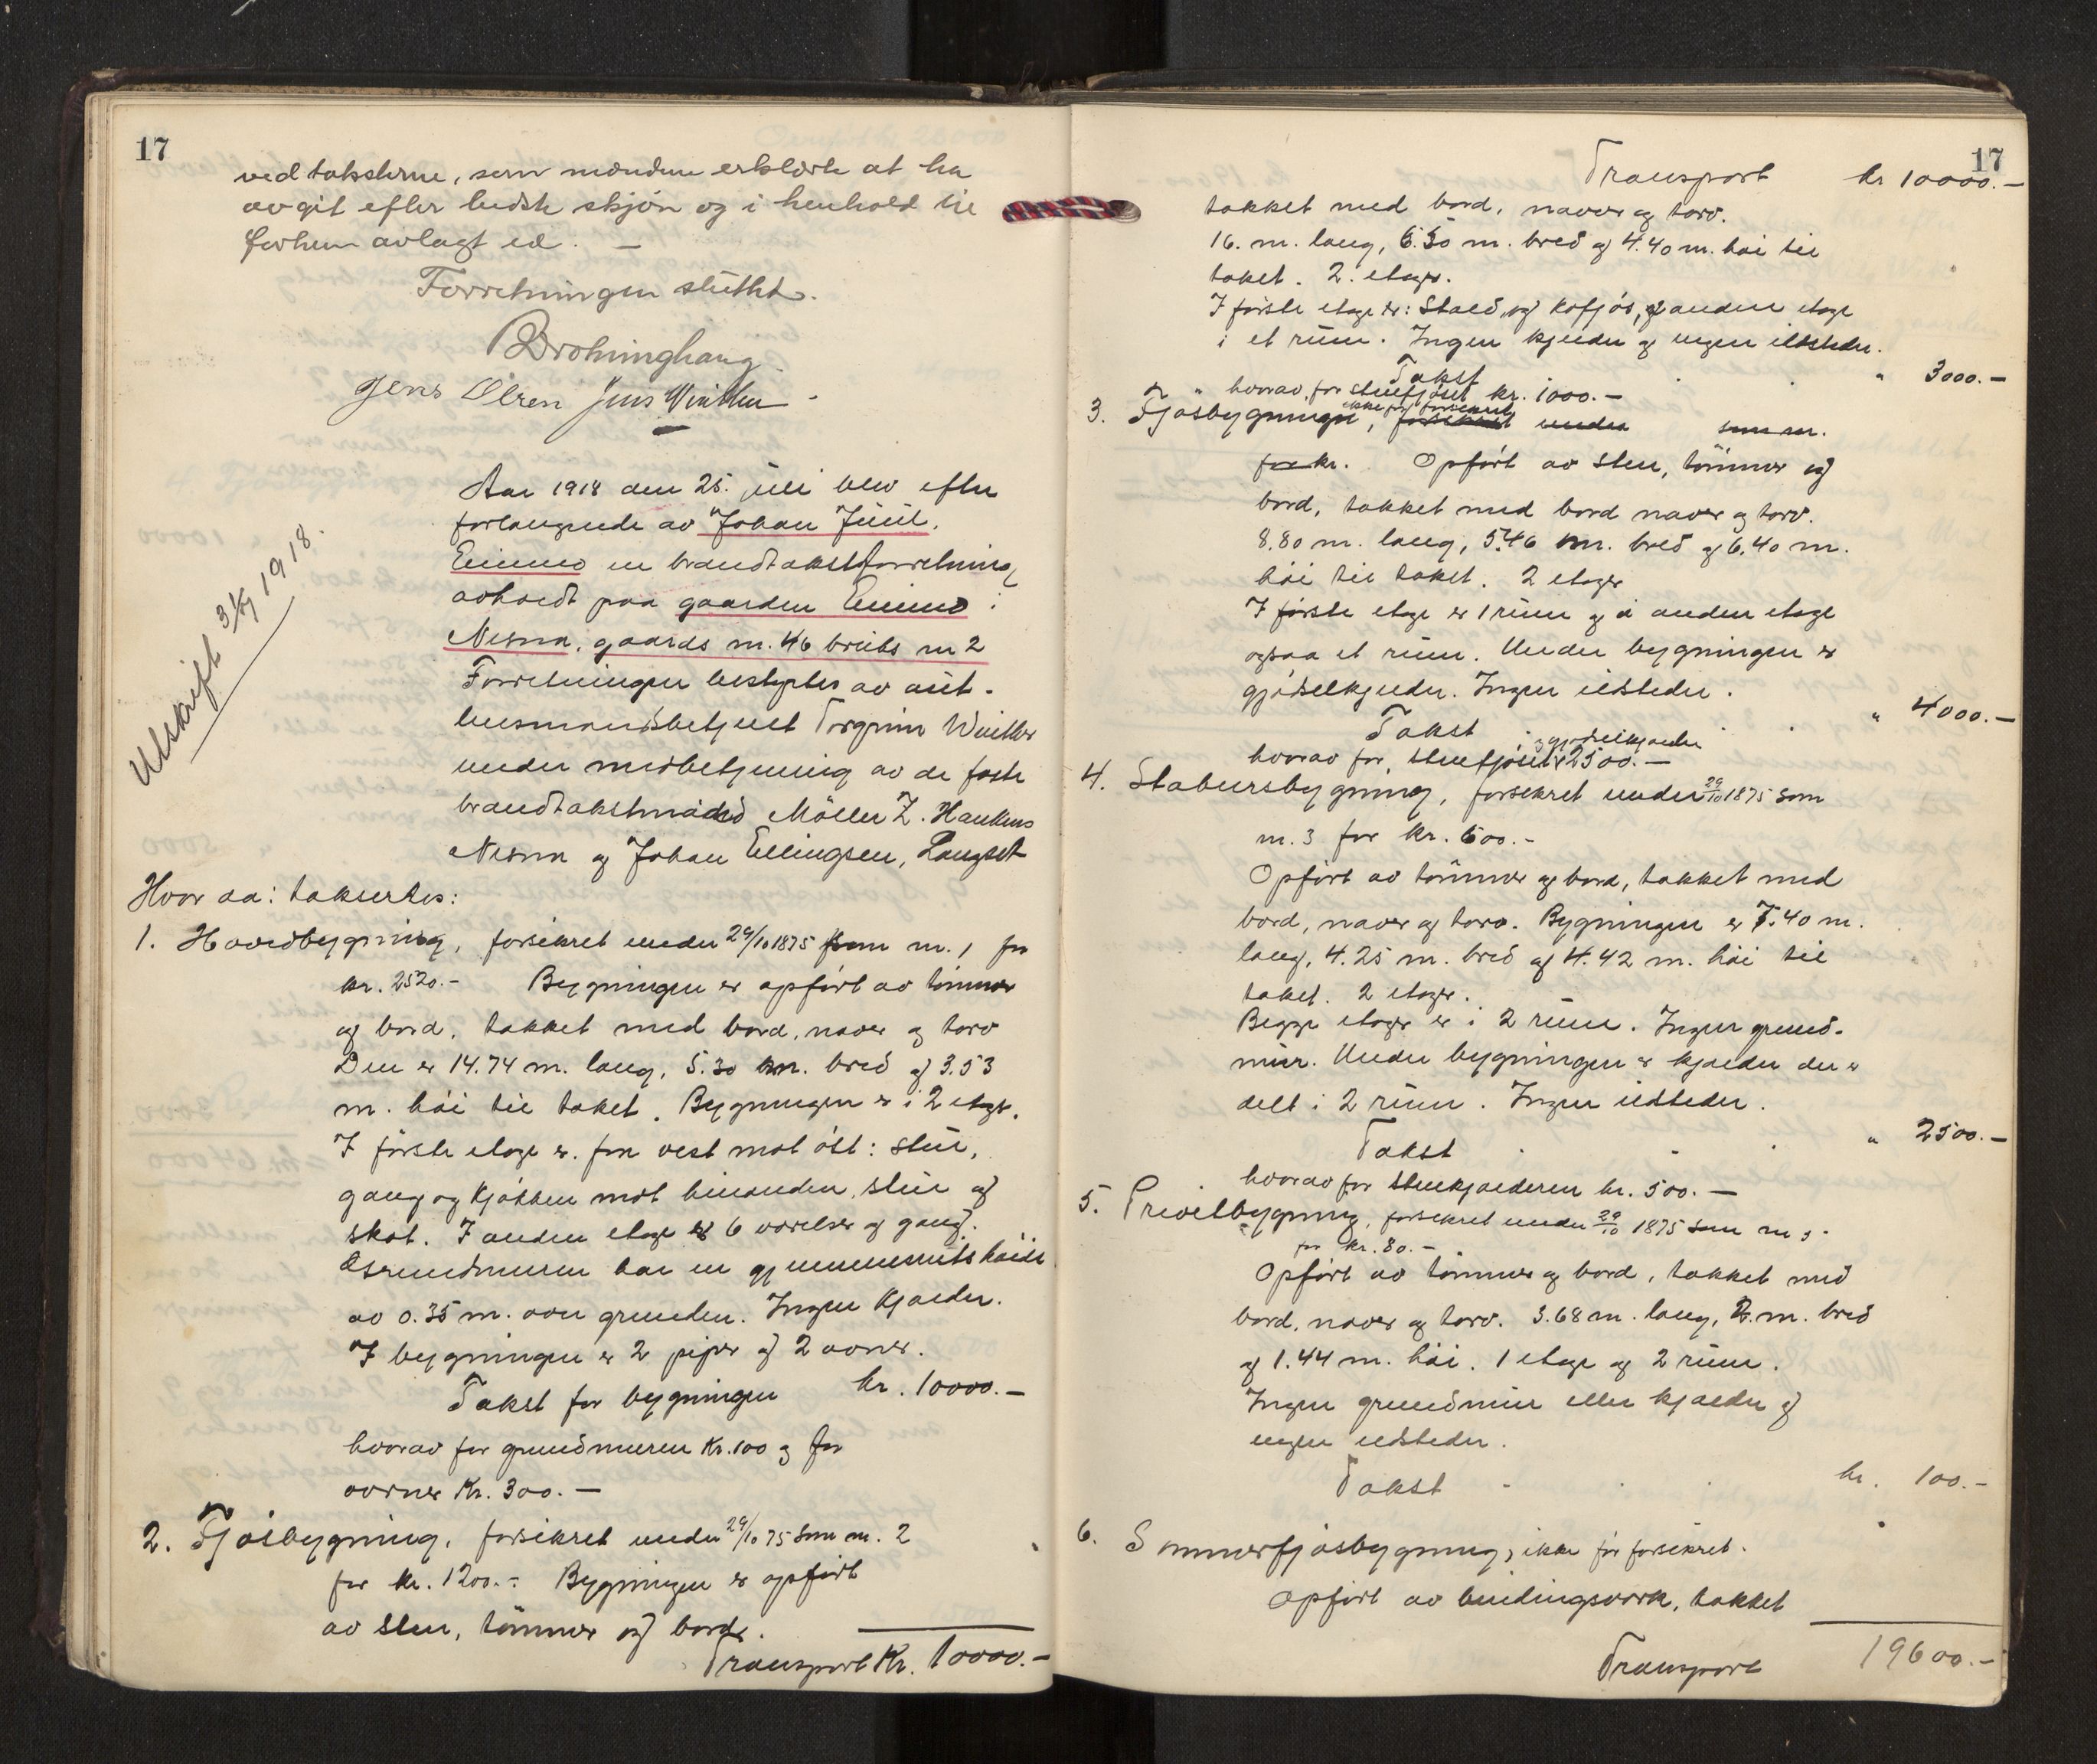 17
ved taksterne, som mændene erklærte at ha
avgit efter bedste skjøn og i henhold til
forhen avlagt ed. —
Forretningen sluttet.
Jens Olsen Jens Winther
Utskrift 31/7 1918.
Aar 1918 den 25. juli blev efter
forlangende av Johan Juul,
en brandtakstforretning
avholdt paa gaarden i
Nesna, gaards nr. 46 bruks nr 2
Forretningen bestyrtes av
lensmandsbetjent Torgrim Winther
under medbetjening av de faste
brandtakstmænd Möller Z. Hankens
Nesna og Johan Ellingsen, Langset
Hvor da: taksertes:
1. Hovedbygning, forsikret under 29/10 1875 som nr. 1 for
kr. 2520.- Bygningen er opført av tømmer
og bord, tækket med bord, næver og torv
Den er 14.74 m. lang, 5.30 m. bred og 3.53
m. høi til taket. Bygningen er i 2 etager.
I første etage er fra vest mot øst: stue,
gang og kjøkken mot hinanden, stue og
skot. I anden etage er 6 værelser og gang.
Grundmuren har en gjennemsnitshøide
av 0.35 m. over grunden. Ingen kjælder.
I bygningen er 2 piper og 2 ovner.
Takst for bygningen kr. 10000.—
hvorav for grundmuren kr. 100 og for
ovner kr. 300.—
2. Fjøsbygning, forsikret under 29/10 75 som nr. 2
for kr. 1200.- Bygningen er opført
av sten, tømmer og bord.
Transport Kr. 10000.—
17
Transport kr 10000.—
tækket med bord, næver og torv.
16. m. lang, 6.30 m. bred og 4.40 m. høi til
taket. 2. etager.
I første etage er: Stald og kofjøs, og anden etage
i et rum. Ingen kjelder og ingen ildsteder.
Takst " 3000.—
hvorav for stenfjøset kr. 1000.—
3. Fjøsbygningen, ikke før forsikret forsikret under som nr.
for kr. Opført av sten, tømmer og
bord, tækket med bord næver og torv.
8.80 m. lang, 5.46 m. bred og 6.40 m.
høi til taket. 2 etager
I første etage er 1 rum og i anden etage
ogsaa et rum. Under bygningen er
gjødselkjelder. Ingen ildsteder.
Takst " 4000.—
hvorav for stenfjøset og gjødselkjælder 2500.—
4. Stabursbygning, forsikret under 29/10 1875 som
nr. 3 for kr. 600.-
Opført av tømmer og bord, tækket med
bord, næver og torv. Bygningen er 7.40 m.
lang, 4.25 m. bred og 4.42 m. høi til
taket. 2 etager.
Begge etager er i 2 rum. Ingen grund-
mur. Under bygningen er kjælder der er
delt i 2 rum. Ingen ildsteder.
Takst " 2500.—
hvorav for stenkjælderen kr. 500.—
5. Privetbygning, forsikret under 29/10 1875 som nr 5
for kr. 80.—
Opført av tømmer og bord, tækket med
bord, næver og torv. 3.68 m. lang, 2. m. bred
og 1.44 m. høi. 1 etage og 2 rum.
Ingen grundmur eller kjælder og
ingen ildsteder.
Takst kr. 100.-
6. Sommerfjøsbygning, ikke før forsikret.
Opført av bindingsverk, tækket
Transport 19600.—